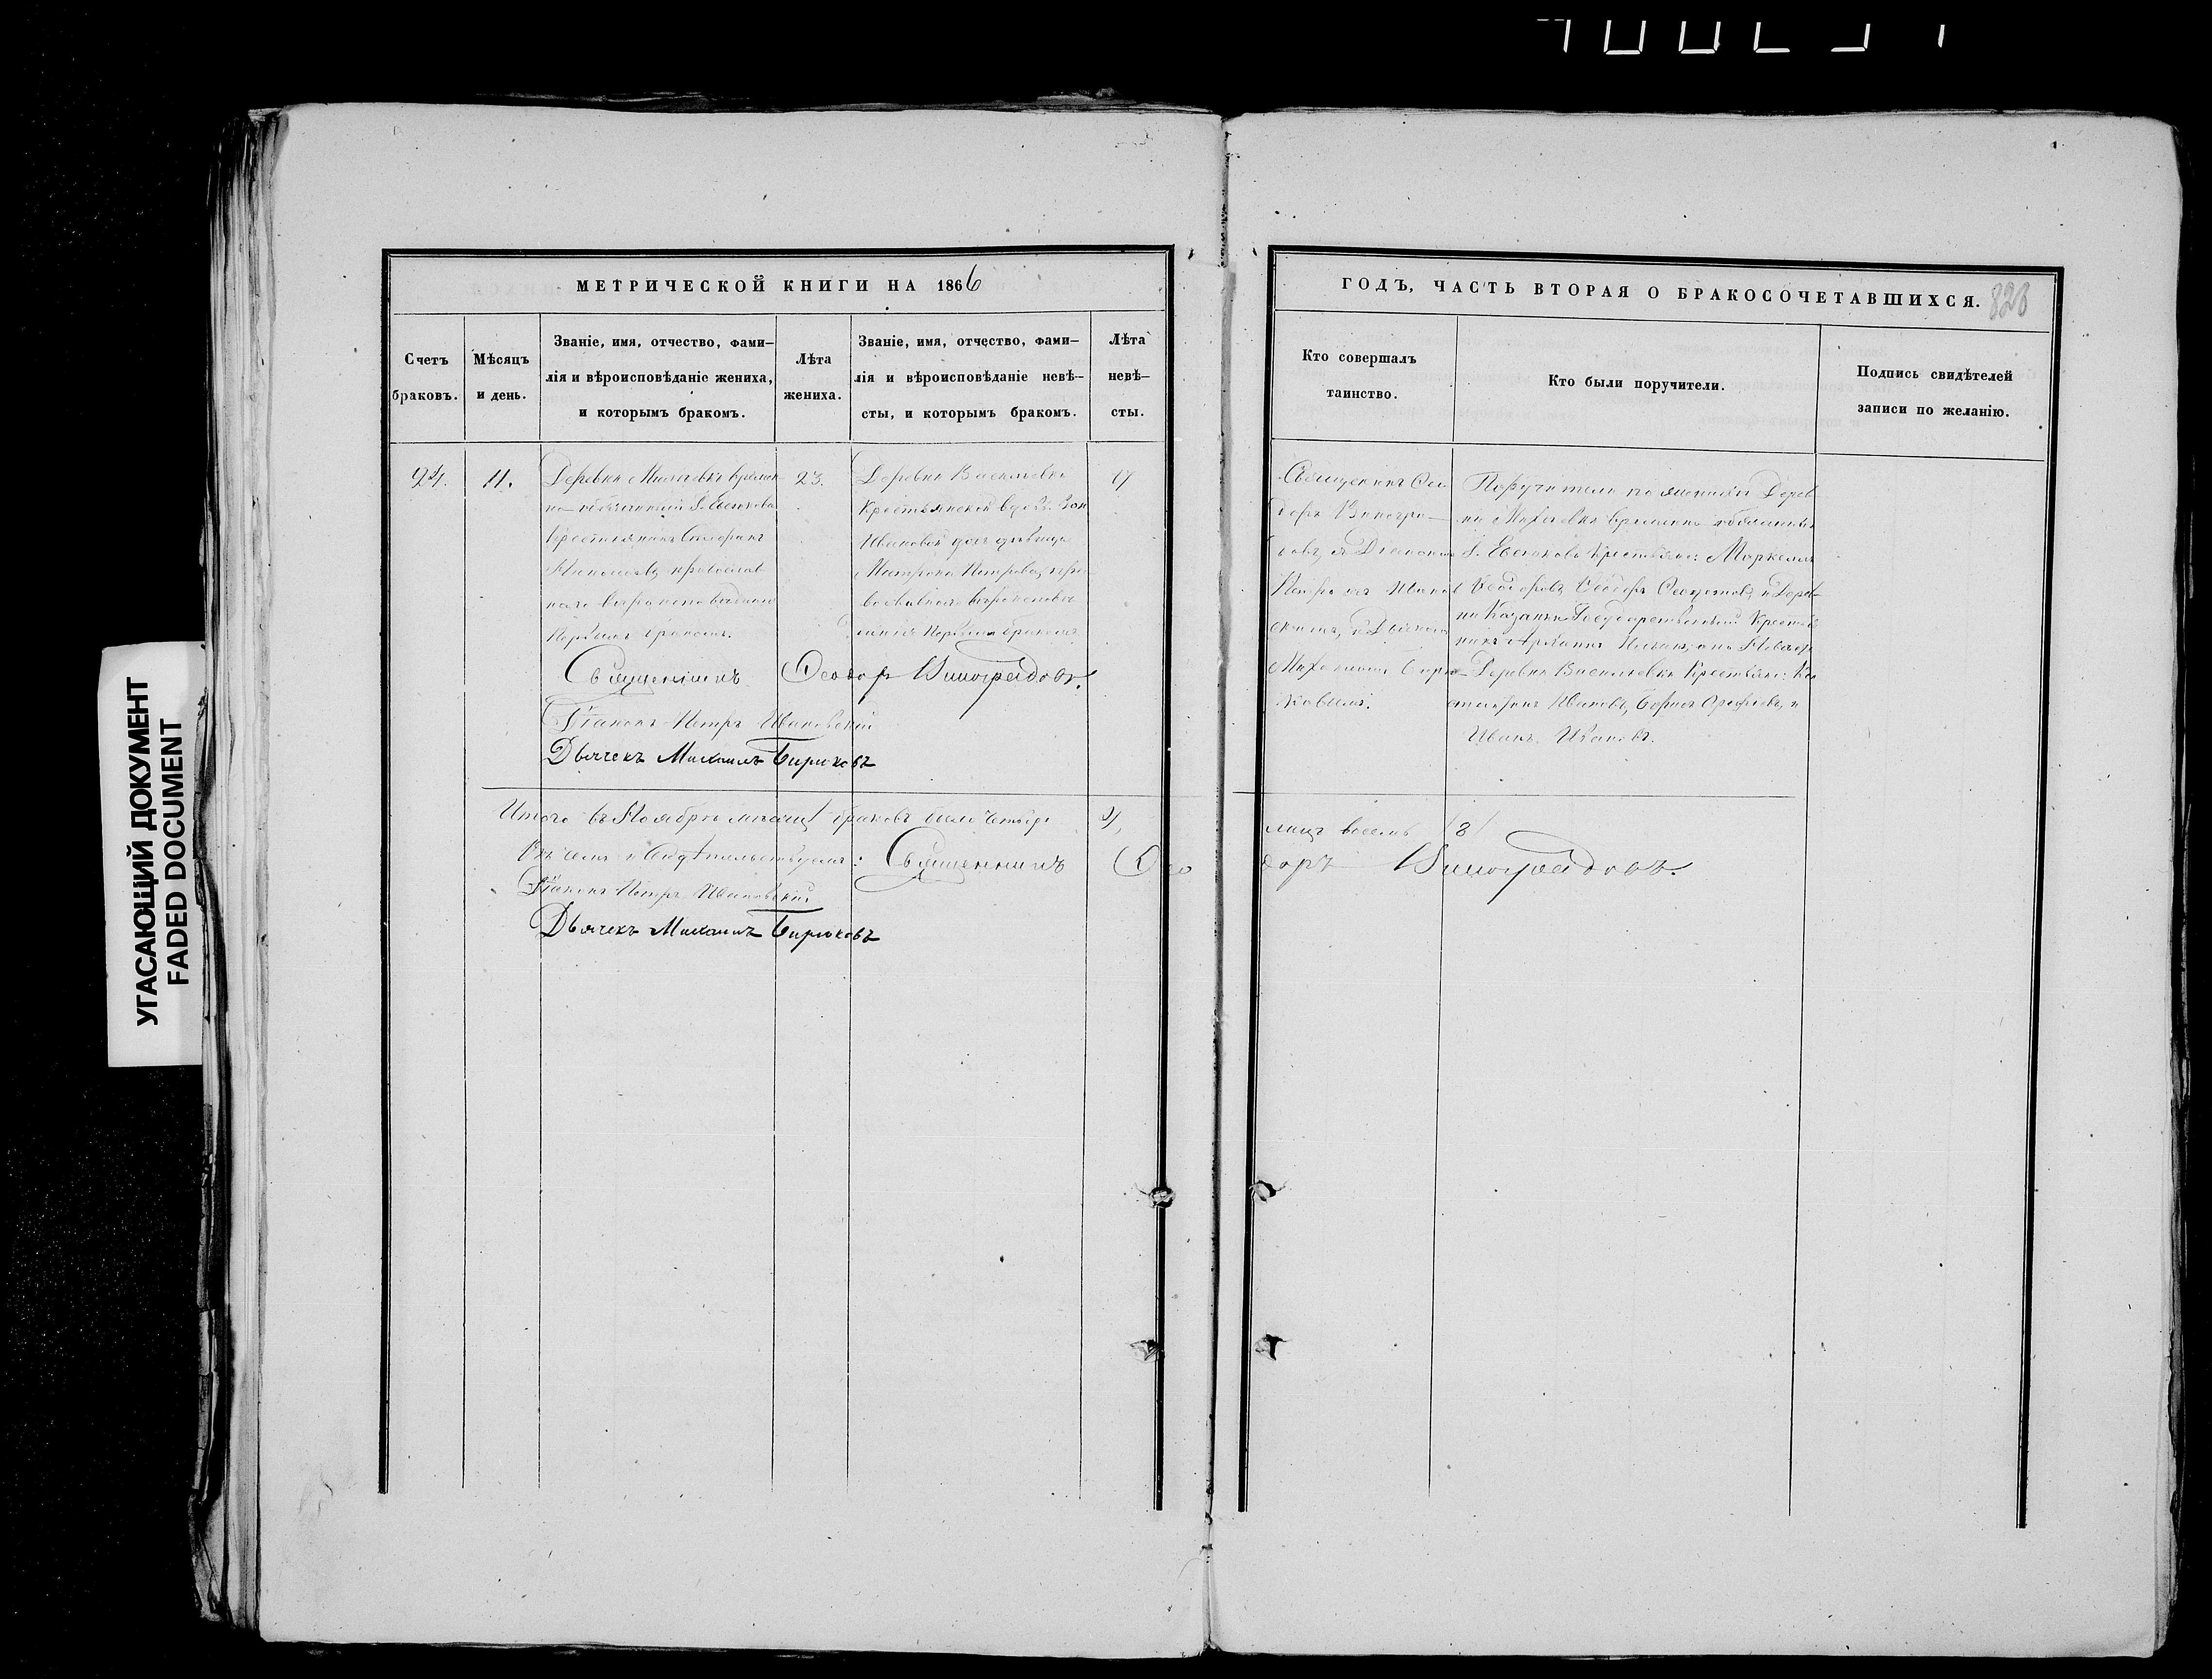 УГАСАЮЩИЙ ДОКУМЕНТ
FADED DOCUMENT
МЕТРИЧЕСКОЙ КНИГИ НА 1866
Счетъ браковъ.
Мѣсяцъ и день.
Званіе, имя, отчество, фами-
лія и вѣроисповѣданіе жениха,
и которымъ бракомъ.
Лѣта жениха.
Званіе, имя, отчество, фами-
лія и вѣроисповѣданіе невѣ-
сты, и которымъ бракомъ.
Лѣта невѣ-
сты.
24.
11.
Деревни
Крестьянинъ
православ
наго вѣроисповѣданія
Первымъ бракомъ.
23.
Деревни Васильевки
Крестьянской
Ивановой дочь дѣвица
Матрона Петрова, пра
вославнаго вѣроисповѣд
Первымъ бракомъ
Священникъ Ѳеодоръ Виноградовъ.
Діаконъ Петръ Ивановскій
Дьячекъ Михаилъ Бирюковъ
Итого въ Ноябрѣ мѣсяцѣ браковъ было четыре 4,
Въ чемъ и свидѣтельствуемъ: Священникъ Ѳео
Діаконъ Петръ Ивановскій
Дьячекъ Михаилъ Бирюковъ
ГОДЪ, ЧАСТЬ ВТОРАЯ О БРАКОСОЧЕТАВШИХСЯ.
826
Кто совершалъ
таинство.
Кто были поручители.
Подпись свидѣтелей
записи по желанію.
Священникъ Ѳео
доръ Виногра-
довъ, съ Діакономъ
Петромъ Иванов
скимъ, и Дьячкомъ
Михаиломъ Бирю-
ковымъ.
Поручители по женихѣ Дерев-
ни временно обязанные
Крестьяне: Маркеллъ
Ѳеодоровъ, Ѳеодоръ и Дерев-
ни Казанки Государственный Крестья
нинъ
Деревни Васильевки Крестьяне:
Ивановъ, Борисъ и
Иванъ Ивановъ.
лицъ восемь /8/
доръ Виноградовъ.